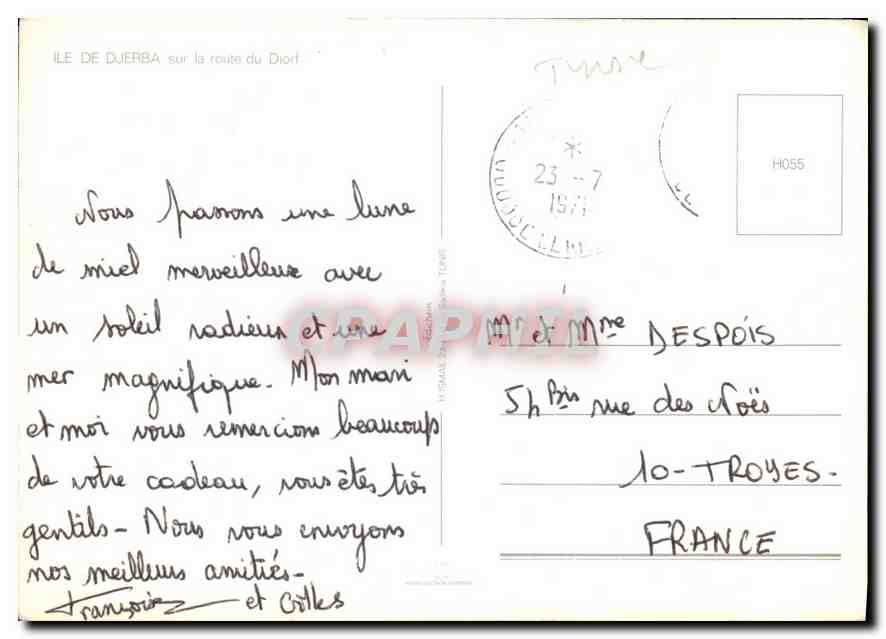 ILE DE DJERBA sur la route du Djorf
Tunisie
23 -7
197
H055
Nous passons une lune
de miel merveilleuse avec
un soleil radieux et une
mer magnifique - Mon mari
et moi vous remercions beaucoup
de votre cadeau, vous êtes très
gentils - Nous vous envoyons
nos meilleurs amitiés -
Françoise et Gilles
CPAPHIL
Mr et Mme DESPOIS
54 Bis rue des Noës
10 - TROYES -
FRANCE